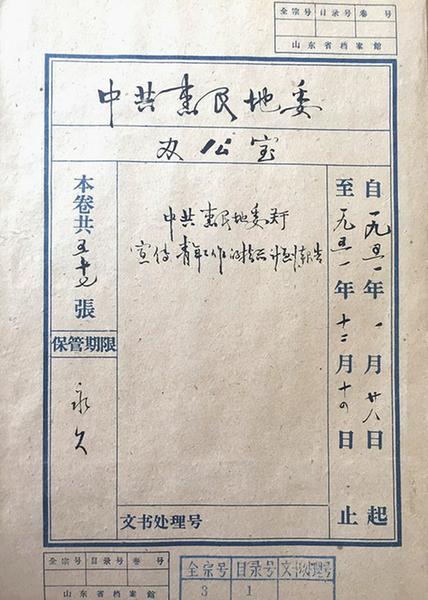 全宗号 目录号 卷号
山东省档案館
中共惠民地委
办公室
自一九五一年一月廿八日起
至一九五一年十二月十四日止
中共惠民地委关于
宣传、青年工作的指示、计划、报告
本卷共五十七張
保管期限
永久
文书处理号
全宗号 目录号 卷号
山东省档案館
全宗号 目录号 文书处理号
3 1